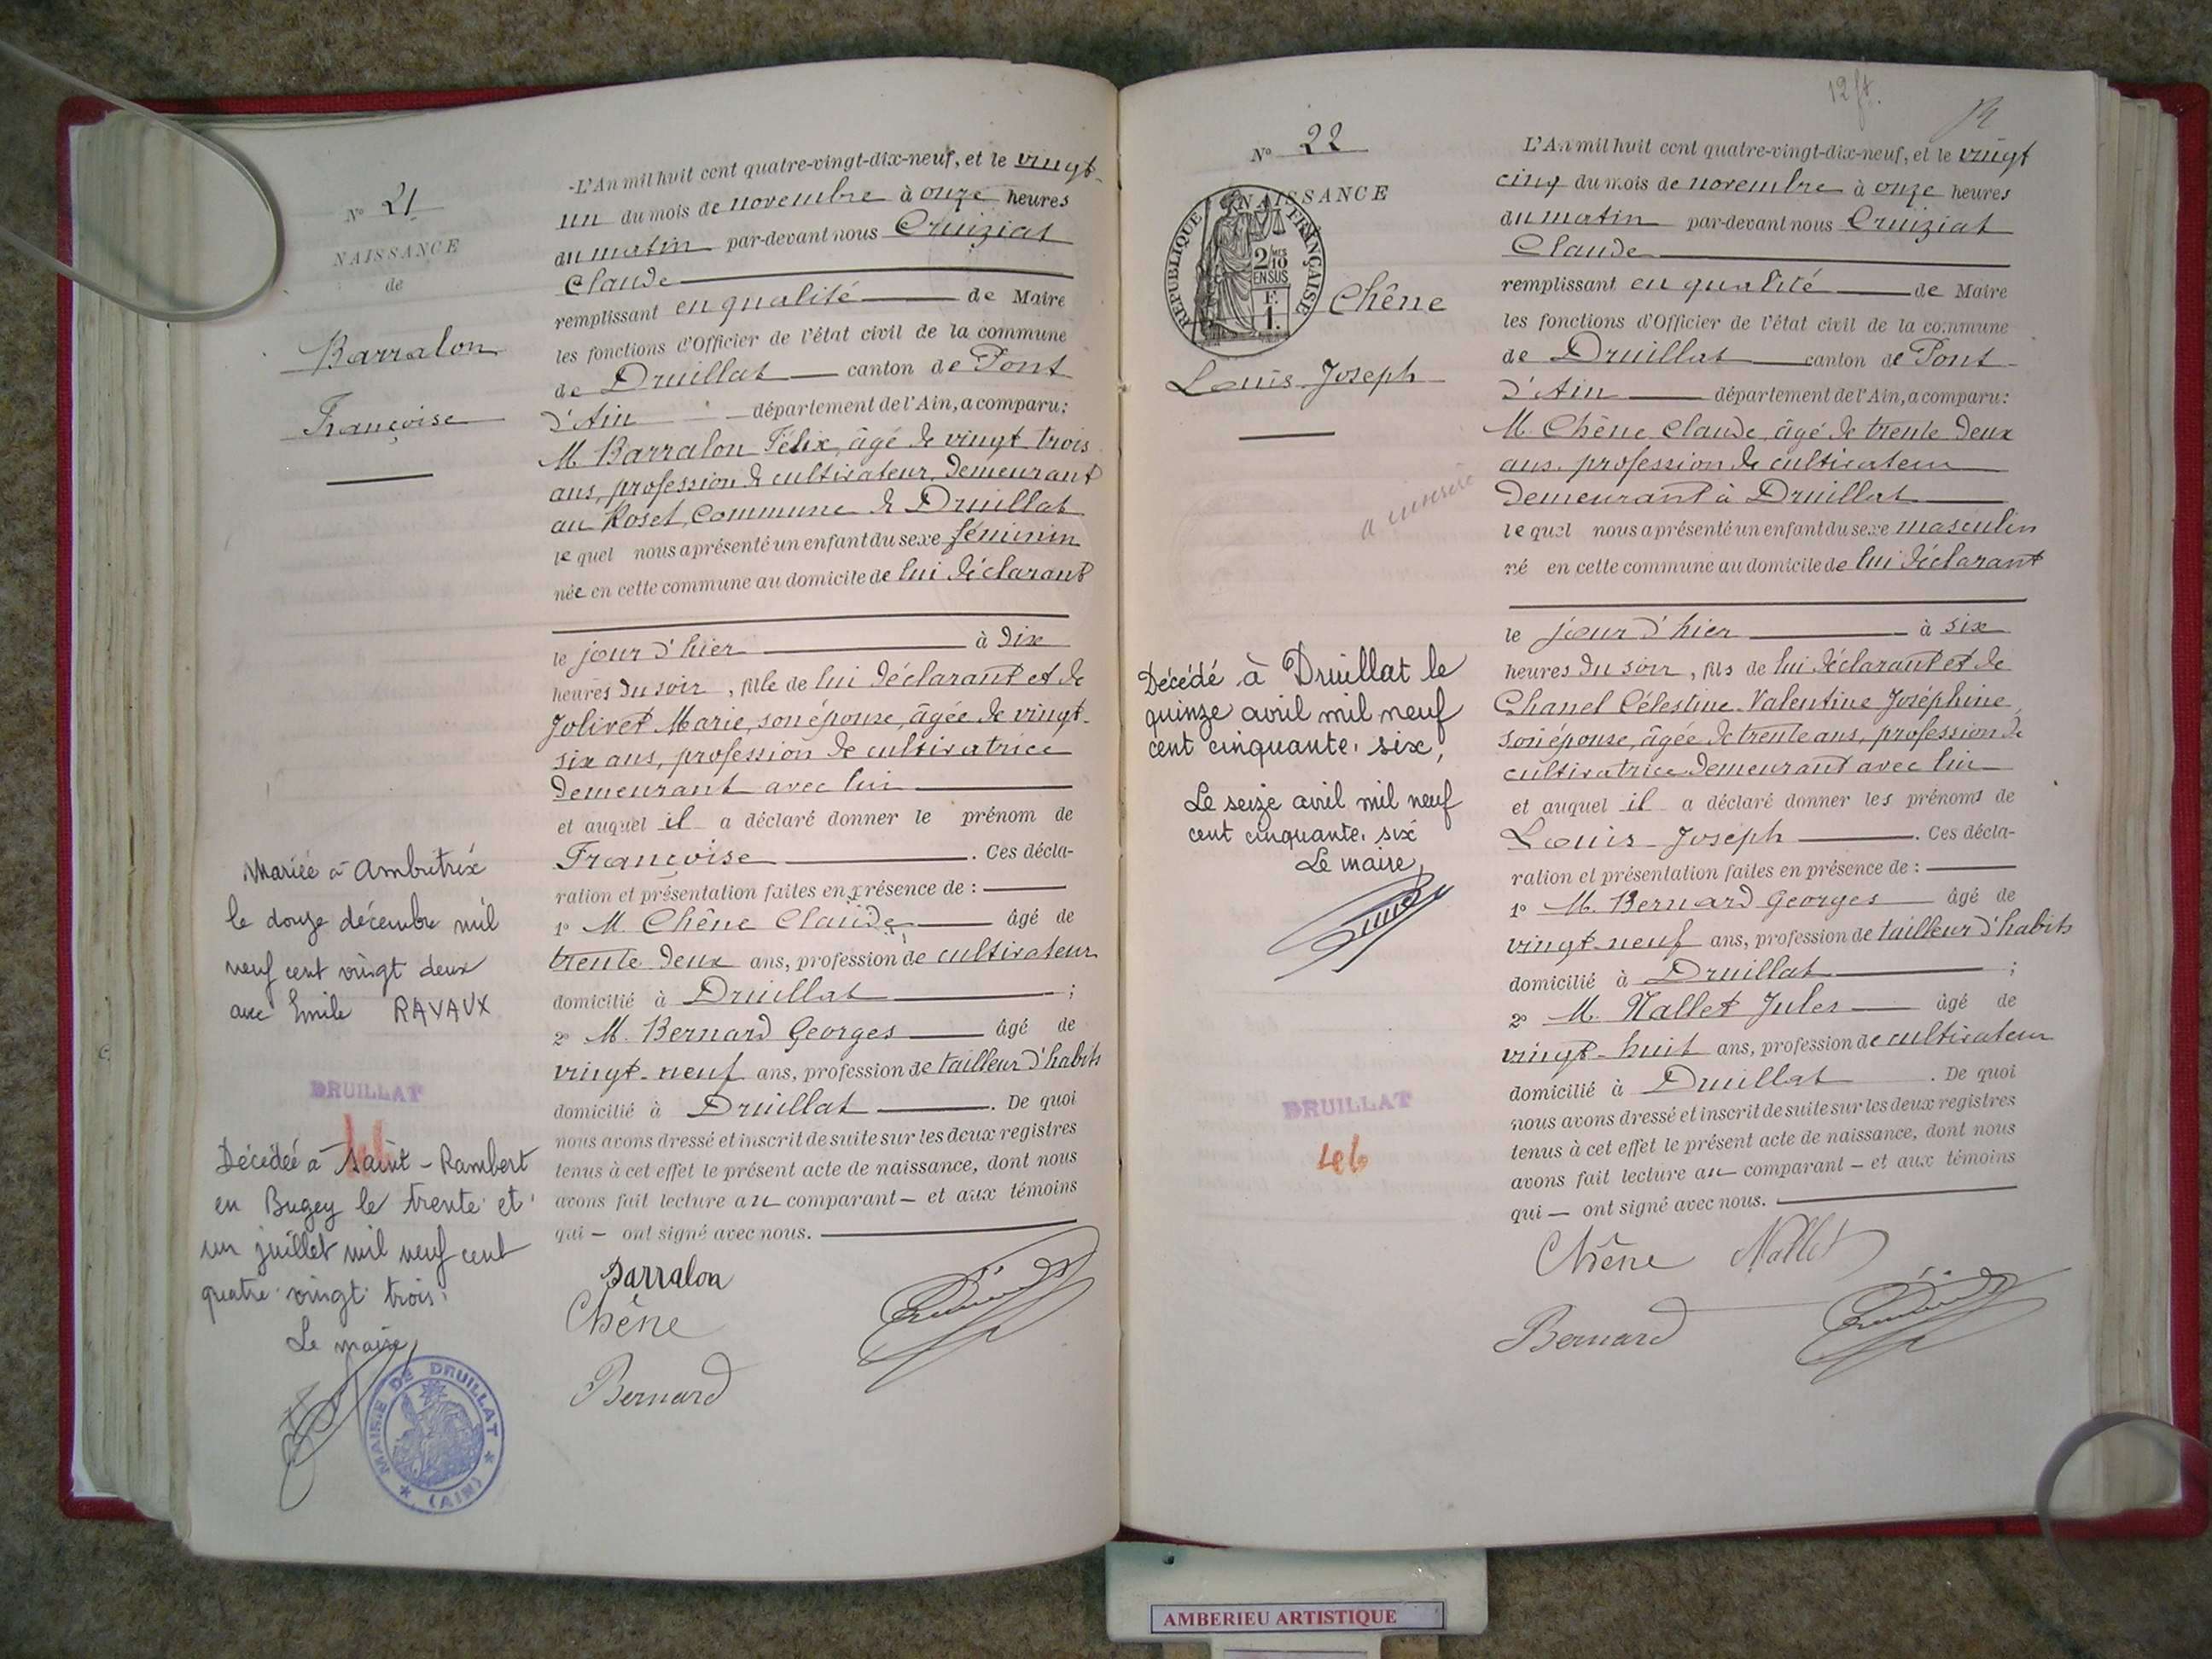 N° 21
NAISSANCE
de
Barralon
Françoise
Mariée à Ambutrix
le douze décembre mil
neuf cent vingt deux
avec Emile RAVAUX
DRUILLAT
46
Décédée à Saint-Rambert
en Bugey le trente et
un juillet mil neuf cent
quatre vingt trois.
Le maire,
MAIRIE DE DRUILLAT
(AIN)
L'An mil huit cent quatre-vingt-dix-neuf, et le vingt-
un du mois de novembre à onze heures
du matin par-devant nous Cruiziat
Claude
remplissant en qualité de Maire
les fonctions d'Officier de l'état civil de la commune
de Druillat canton de Pont
d'Ain département de l'Ain, a comparu:
M. Barralon Félix, âgé de vingt trois
ans, profession de cultivateur, demeurant
au Roset, commune de Druillat
le quel nous a présenté un enfant du sexe féminin
née en cette commune au domicile de lui déclarant
le jour d'hier à dix
heures du soir, fille de lui déclarant et de
Jolivet Marie, son épouse, âgée de vingt-
six ans, profession de cultivatrice
demeurant avec lui
et auquel il a déclaré donner le prénom de
Françoise. Ces décla-
ration et présentation faites en présence de :
1° M. Chêne Claude âgé de
trente deux ans, profession de cultivateur
domicilié à Druillat ;
2° M. Bernard Georges âgé de
vingt-neuf ans, profession de tailleur d'habits
domicilié à Druillat. De quoi
nous avons dressé et inscrit de suite sur les deux registres
tenus à cet effet le présent acte de naissance, dont nous
avons fait lecture au comparant – et aux témoins
qui – ont signé avec nous.
Barralon
Chêne
Bernard
12 ft.
N° 22
NAISSANCE
REPUBLIQUE FRANÇAISE
2/10
EN SUS
F.
1.
Chêne
Louis-Joseph
Décédé à Druillat le
quinze avril mil neuf
cent cinquante-six,
Le seize avril mil neuf
cent cinquante-six
Le maire,
DRUILLAT
46
L'An mil huit cent quatre-vingt-dix-neuf, et le vingt
cinq du mois de novembre à onze heures
du matin par-devant nous Cruiziat
Claude
remplissant en qualité de Maire
les fonctions d'Officier de l'état civil de la commune
de Druillat canton de Pont-
d'Ain département de l'Ain, a comparu:
M. Chêne Claude, âgé de trente deux
ans, profession de cultivateur
demeurant à Druillat
le quel nous a présenté un enfant du sexe masculin
né en cette commune au domicile de lui déclarant
le jour d'hier à six
heures du soir, fils de lui déclarant et de
Chanel Célestine-Valentine Joséphine,
son épouse, âgée de trente ans, profession de
cultivatrice demeurant avec lui
et auquel il a déclaré donner les prénoms de
Louis-Joseph. Ces décla-
ration et présentation faites en présence de :
1° M. Bernard Georges âgé de
vingt-neuf ans, profession de tailleur d'habits
domicilié à Druillat ;
2° M. Nallet Jules âgé de
vingt-huit ans, profession de cultivateur
domicilié à Druillat. De quoi
nous avons dressé et inscrit de suite sur les deux registres
tenus à cet effet le présent acte de naissance, dont nous
avons fait lecture au comparant – et aux témoins
qui – ont signé avec nous.
Chêne Nallet
Bernard
AMBERIEU ARTISTIQUE